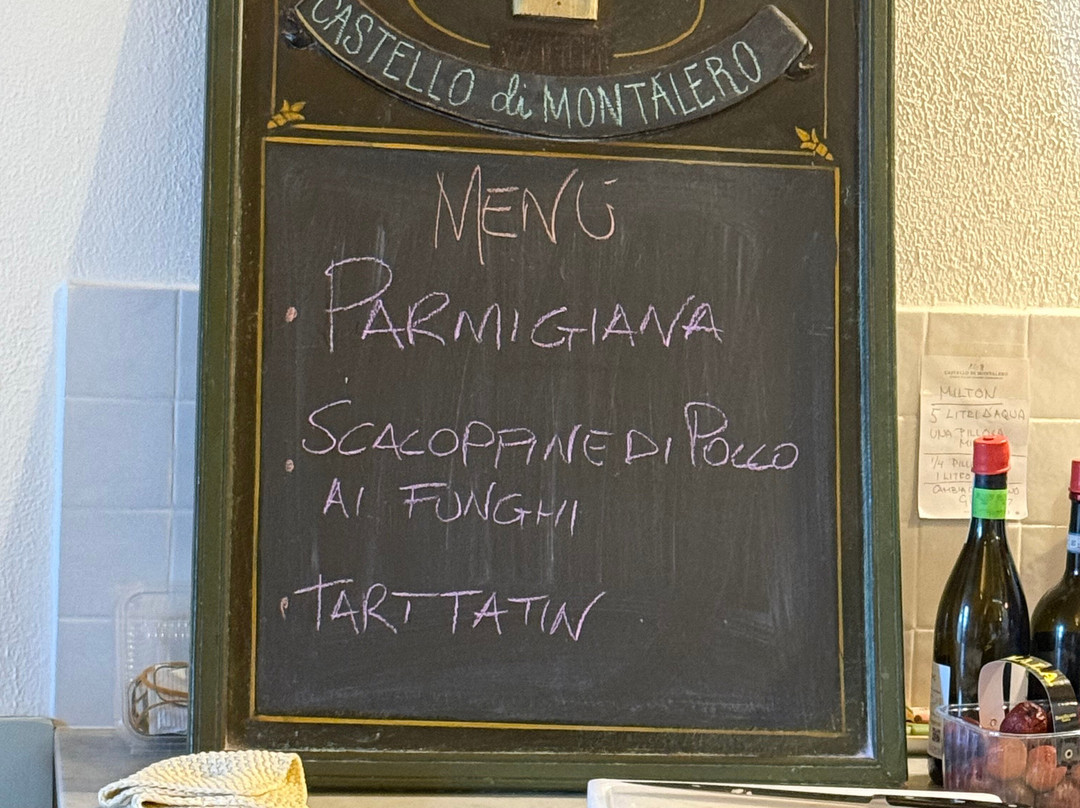 CASTELLO di MONTALERO
MENÙ
• PARMIGIANA
• SCALOPPINE DI POLLO
AI FUNGHI
• TARTTATIN
CASTELLO DI MONTALERO
MILTON
5 LITRI D'AQUA
UNA PILLOLA
1/4
1 LITRO